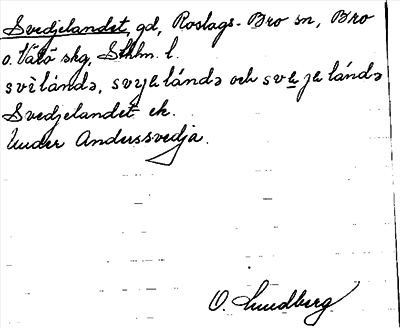 Svedjelandet, gd, Roslags-Bro sn, Bro
o. Vätö skg, Sthlm. l.
svìlándə, svyɛlándə och svɛjɛlándə
Svedjelandet ek.
Under Anderssvedja.
O. Lundberg